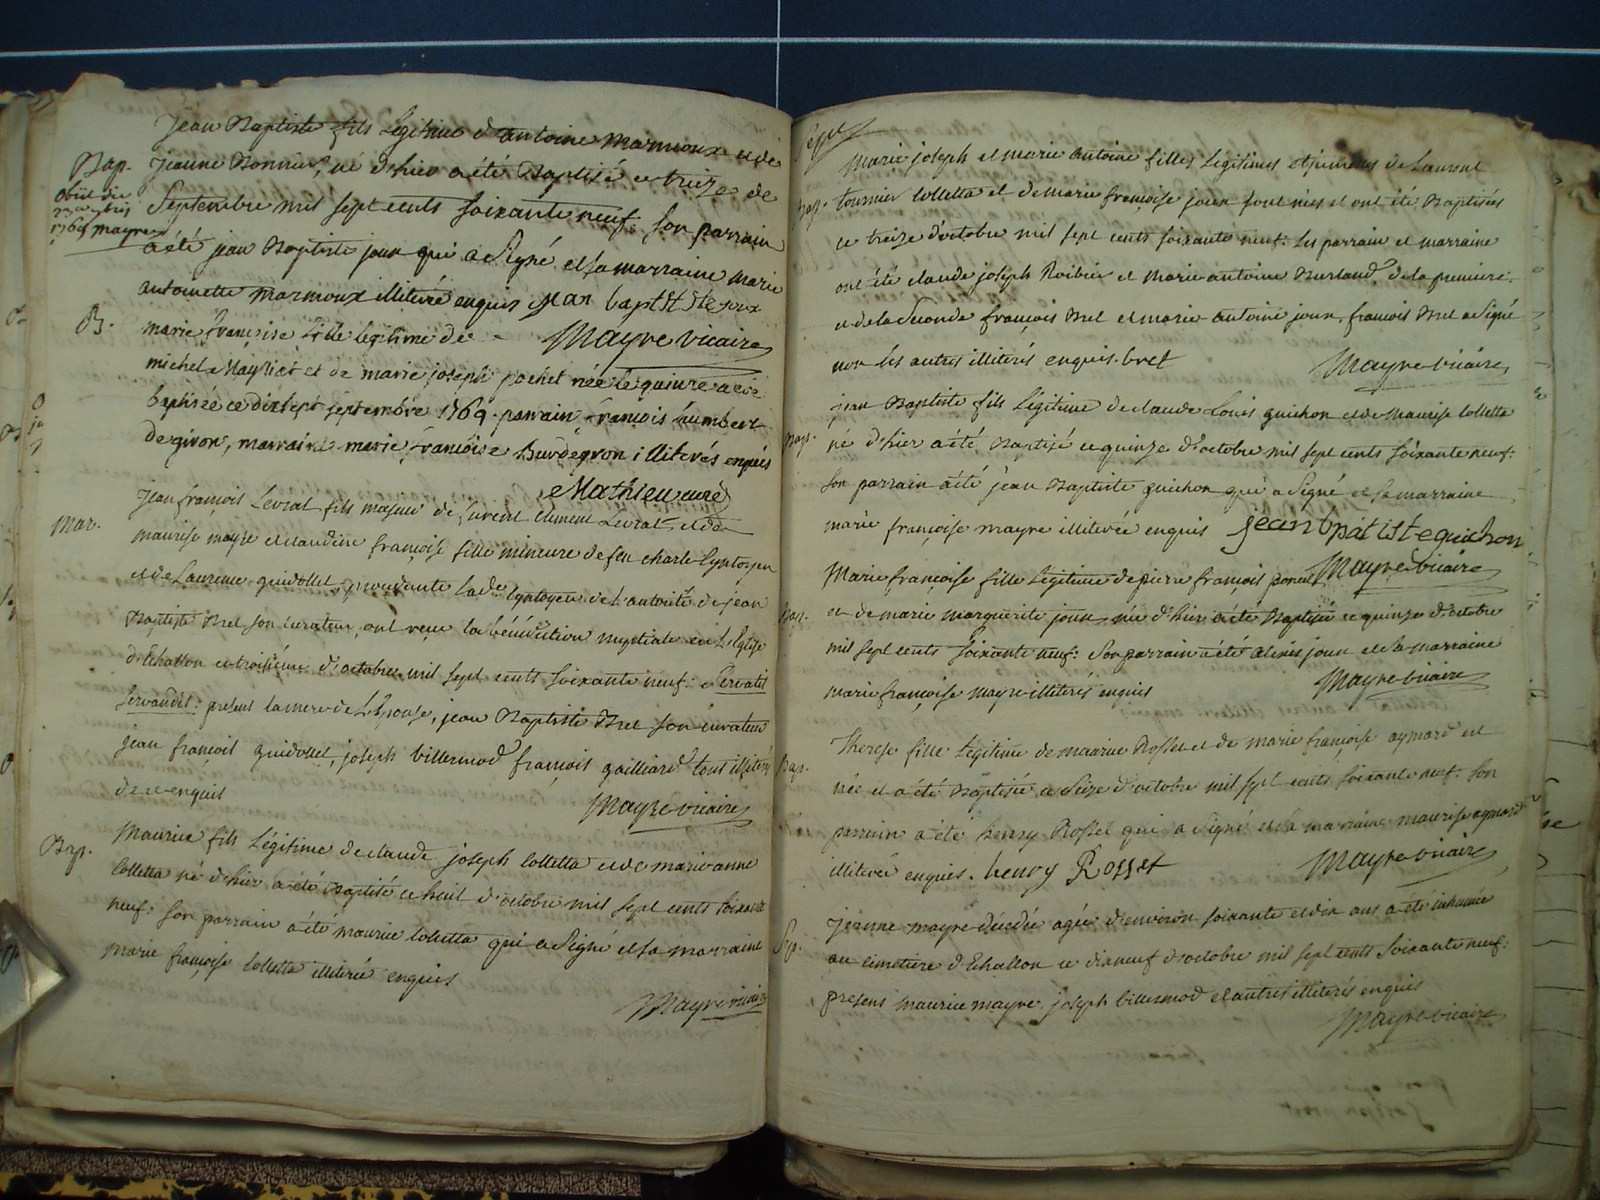 Jean Baptiste fils Légitime d'antoine Marmoux et de
Bap. jeanne Bonnier, né d'hier a été Baptisé ce treize de
obiit die
1769 mayre
Septembre mil sept cents soixante neuf. son parrain
a été jean Baptiste joux qui a Signé et sa marraine marie
antoinette marmoux illiterée enquis jean baptiste joux
B. marie françoise fille légitime de Mayre vicaire
michel Maysiat et de marie joseph pochet née le quinze a été
baptisée ce dixsept septembre 1769. parrain françois humbert
de giron, marraine marie françoise Burdegron illiterés enquis
Mathieu curé
Mar. jean françois Levrat fils majeur de furent Clement Levrat, et de
maurise mayre et claudine françoise fille mineure de feu charle
et de Laurence guidollet, procedante lade de L'autorité de jean
Baptiste Bret son curateur, ont reçu la bénédiction nuptiale en L'Eglise
d'Echallon ce troisième d'octobre mil sept cents soixante neuf: Servatis
Servandis: presens la mere de L'Epouse, jean Baptiste Bret son curateur
jean françois guidollet, joseph billermod françois gailliard tous illiterés
de ce enquis Mayre vicaire
Bap. Maurice fils Légitime de claude joseph Colletta et de marie anne
Colletta né d'hier a été Baptisé ce huit d'octobre mil sept cents soixante
neuf: son parrain a été maurice Colletta qui a Signé et sa marraine
marie françoise Colletta illiterée enquis
Mayre vicaire
Marie joseph et marie antoine filles Légitimes et jumeles de Laurent
Bap. tournier Colletta et de marie françoise joux sont nées et ont été Baptisées
ce treize d'octobre mil sept cents soixante neuf. Les parrain et marraine
ont été claude joseph Roibier et marie antoine Burland de la premiere
et de la Seconde françois Bret et marie antoine joux. françois Bret a Signé
non les autres illiterés enquis. bret Mayre vicaire
jean Baptiste fils Légitime de claude Louis guichon et de Maurise Colletta
Bap. né d'hier a été Baptisé ce quinze d'octobre mil sept cents soixante neuf:
son parrain a été jean Baptiste guichon qui a Signé et sa marraine
marie françoise mayre illiterée enquis jean bpatiste guichon
Marie françoise fille Légitime de pierre françois poncet Mayre vicaire
Bap. et de marie marguerite joux née d'hier a été Baptisée ce quinze d'octobre
mil sept cents soixante neuf: son parrain a été alexis joux et la marraine
marie françoise mayre illiterés enquis Mayre vicaire
Bap. Therese fille Légitime de maurice Rosset et de marie françoise aymard est
née et a été Baptisée ce Seize d'octobre mil sept cents soixante neuf. son
parrain a été henry Rosset qui a Signé et la marraine maurise aymard
illiterée enquis. henry Rosset Mayre vicaire
Sep. jeanne mayre décédée agée d'environ soixante et dix ans a été inhumée
au cimetiere d'Echallon ce dixneuf d'octobre mil sept cents soixante neuf:
presens maurice mayre, joseph billermod et autres illiterés enquis
Mayre vicaire